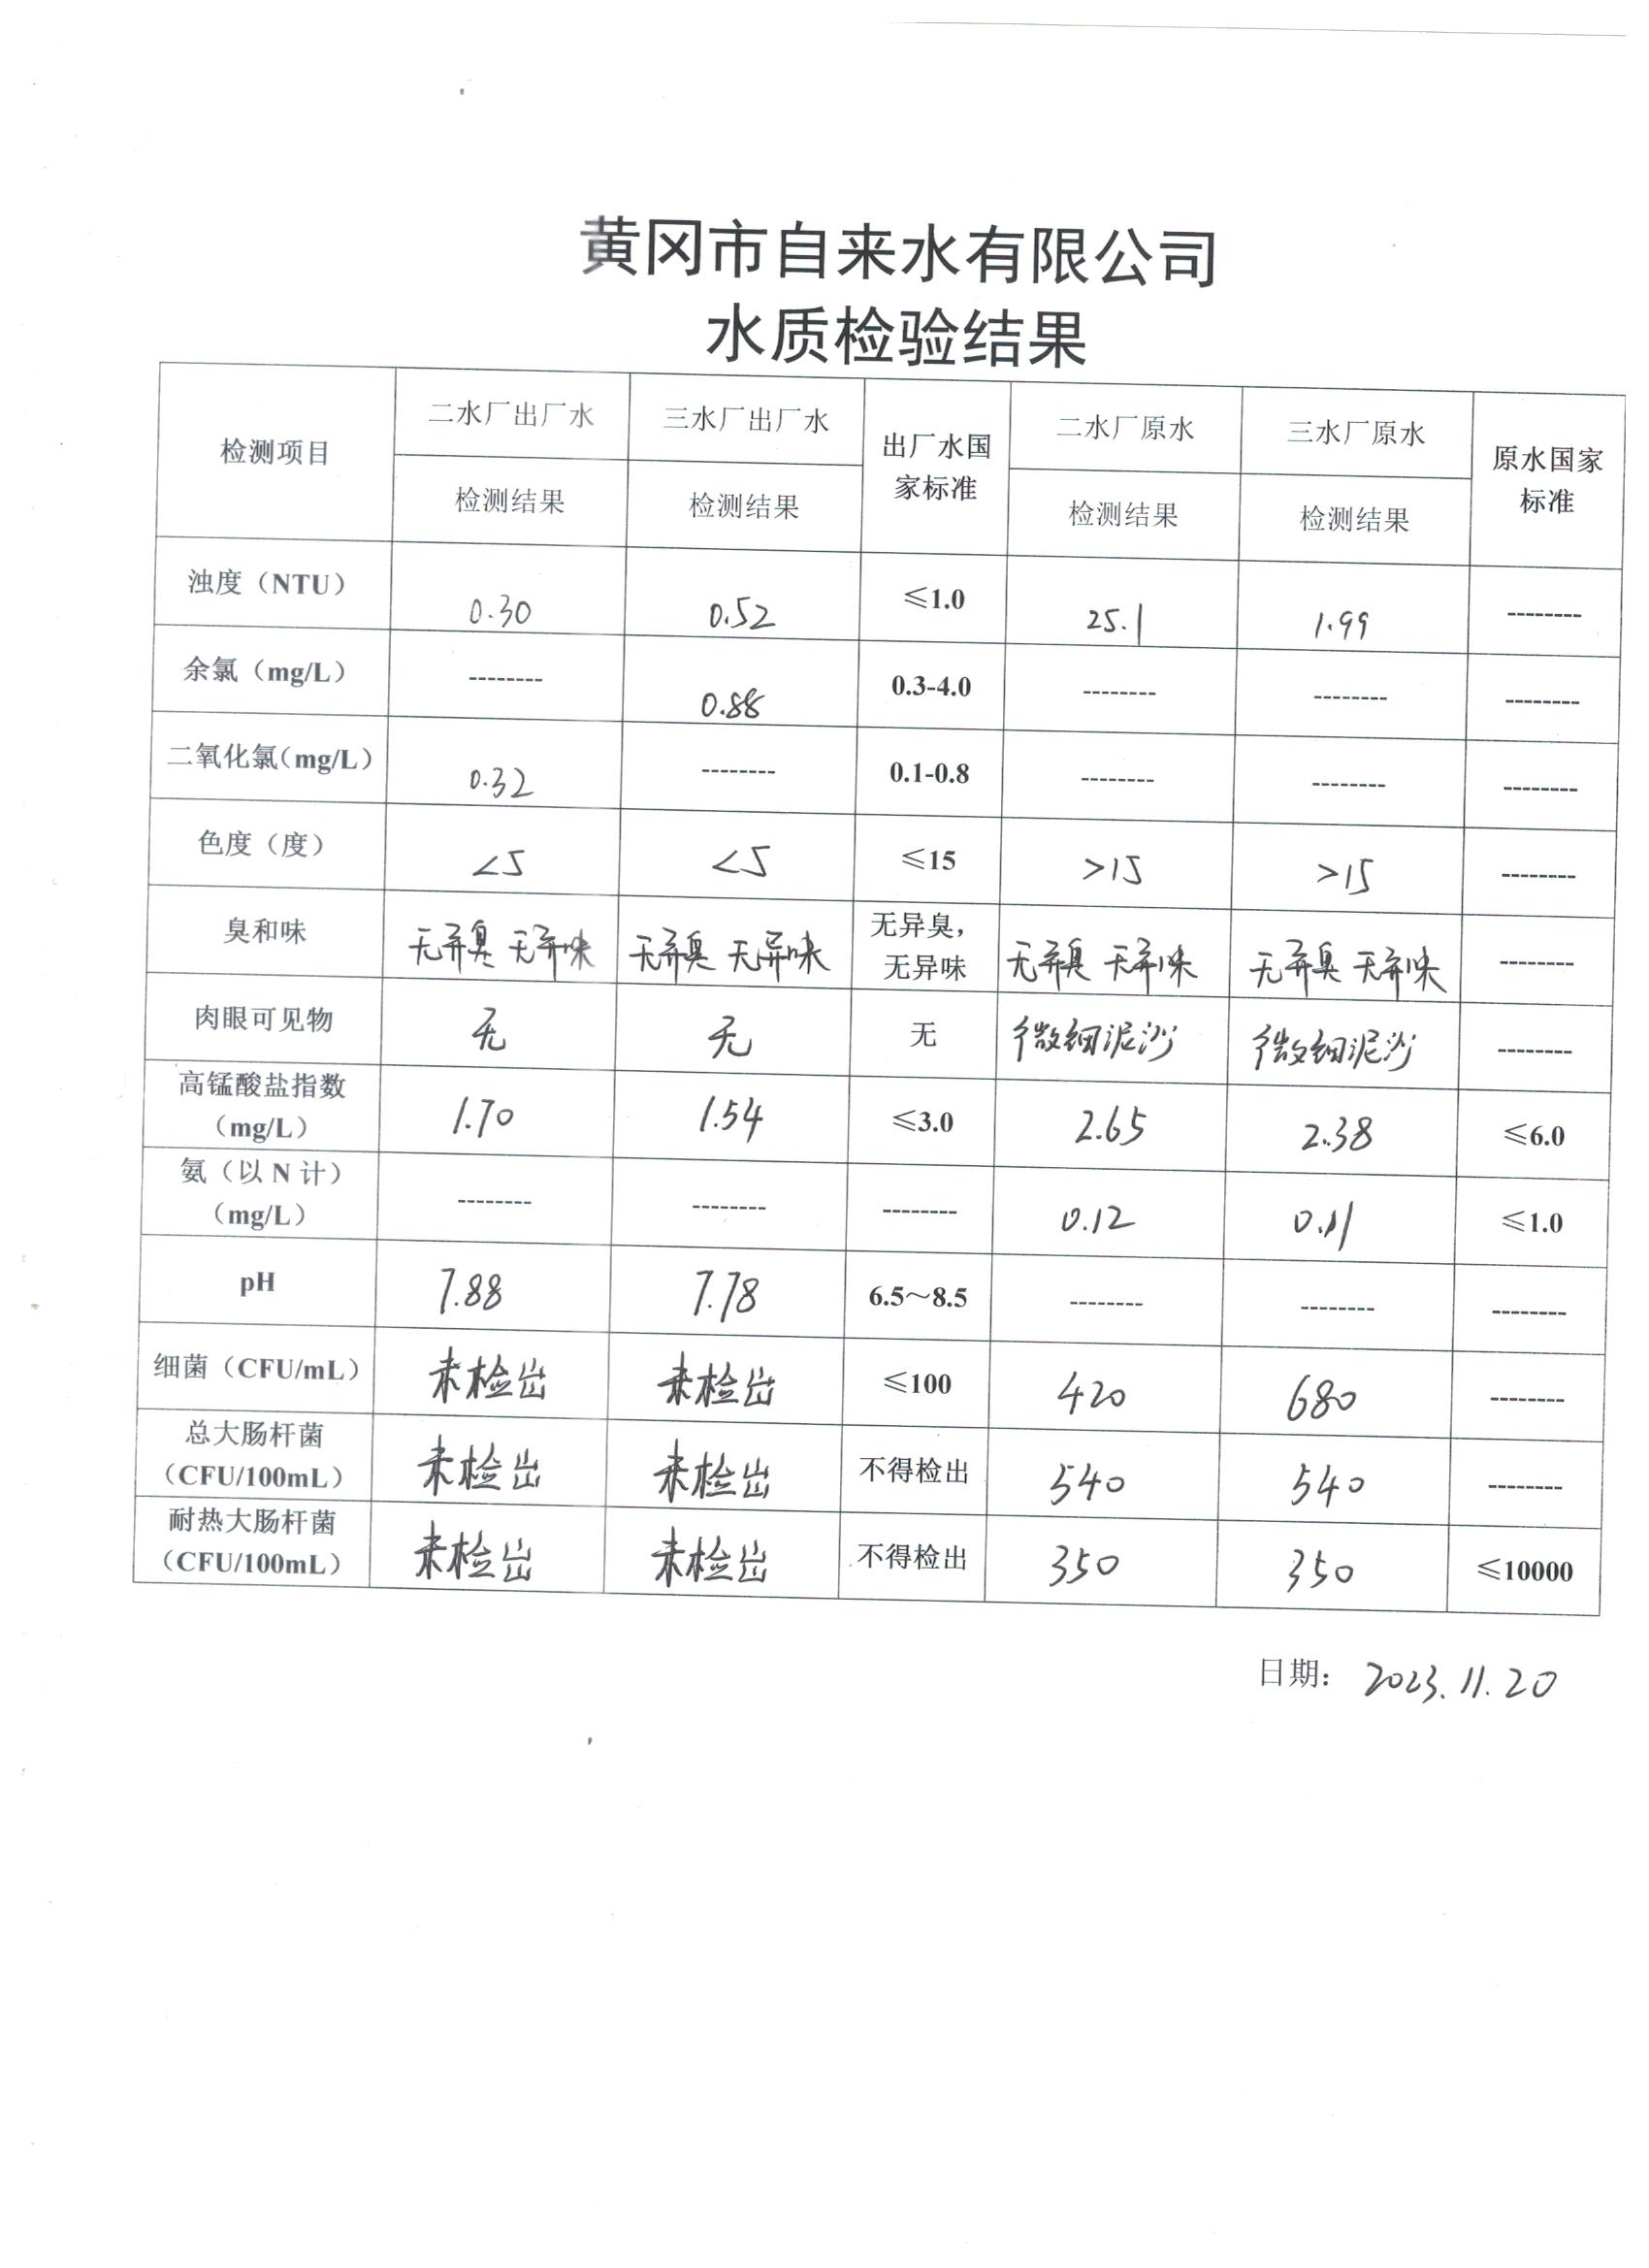 黄冈市自来水有限公司
水质检验结果
检测项目 二水厂出厂水 三水厂出厂水 出厂水国家标准 二水厂原水 三水厂原水 原水国家标准
检测结果 检测结果 检测结果 检测结果
浊度（NTU） 0.30 0.52 ≤1.0 25.1 1.99 --------
余氯（mg/L） -------- 0.88 0.3-4.0 -------- -------- --------
二氧化氯（mg/L） 0.32 -------- 0.1-0.8 -------- -------- --------
色度（度） <5 <5 ≤15 >15 >15 --------
臭和味 无异臭 无异味 无异臭 无异味 无异臭，无异味 无异臭 无异味 无异臭 无异味 --------
肉眼可见物 无 无 无 微细泥沙 微细泥沙 --------
高锰酸盐指数（mg/L） 1.70 1.54 ≤3.0 2.65 2.38 ≤6.0
氨（以 N 计）（mg/L） -------- -------- -------- 0.12 0.11 ≤1.0
pH 7.88 7.78 6.5～8.5 -------- -------- --------
细菌（CFU/mL） 未检出 未检出 ≤100 420 680 --------
总大肠杆菌（CFU/100mL） 未检出 未检出 不得检出 540 540 --------
耐热大肠杆菌（CFU/100mL） 未检出 未检出 不得检出 350 350 ≤10000
日期： 2023.11.20